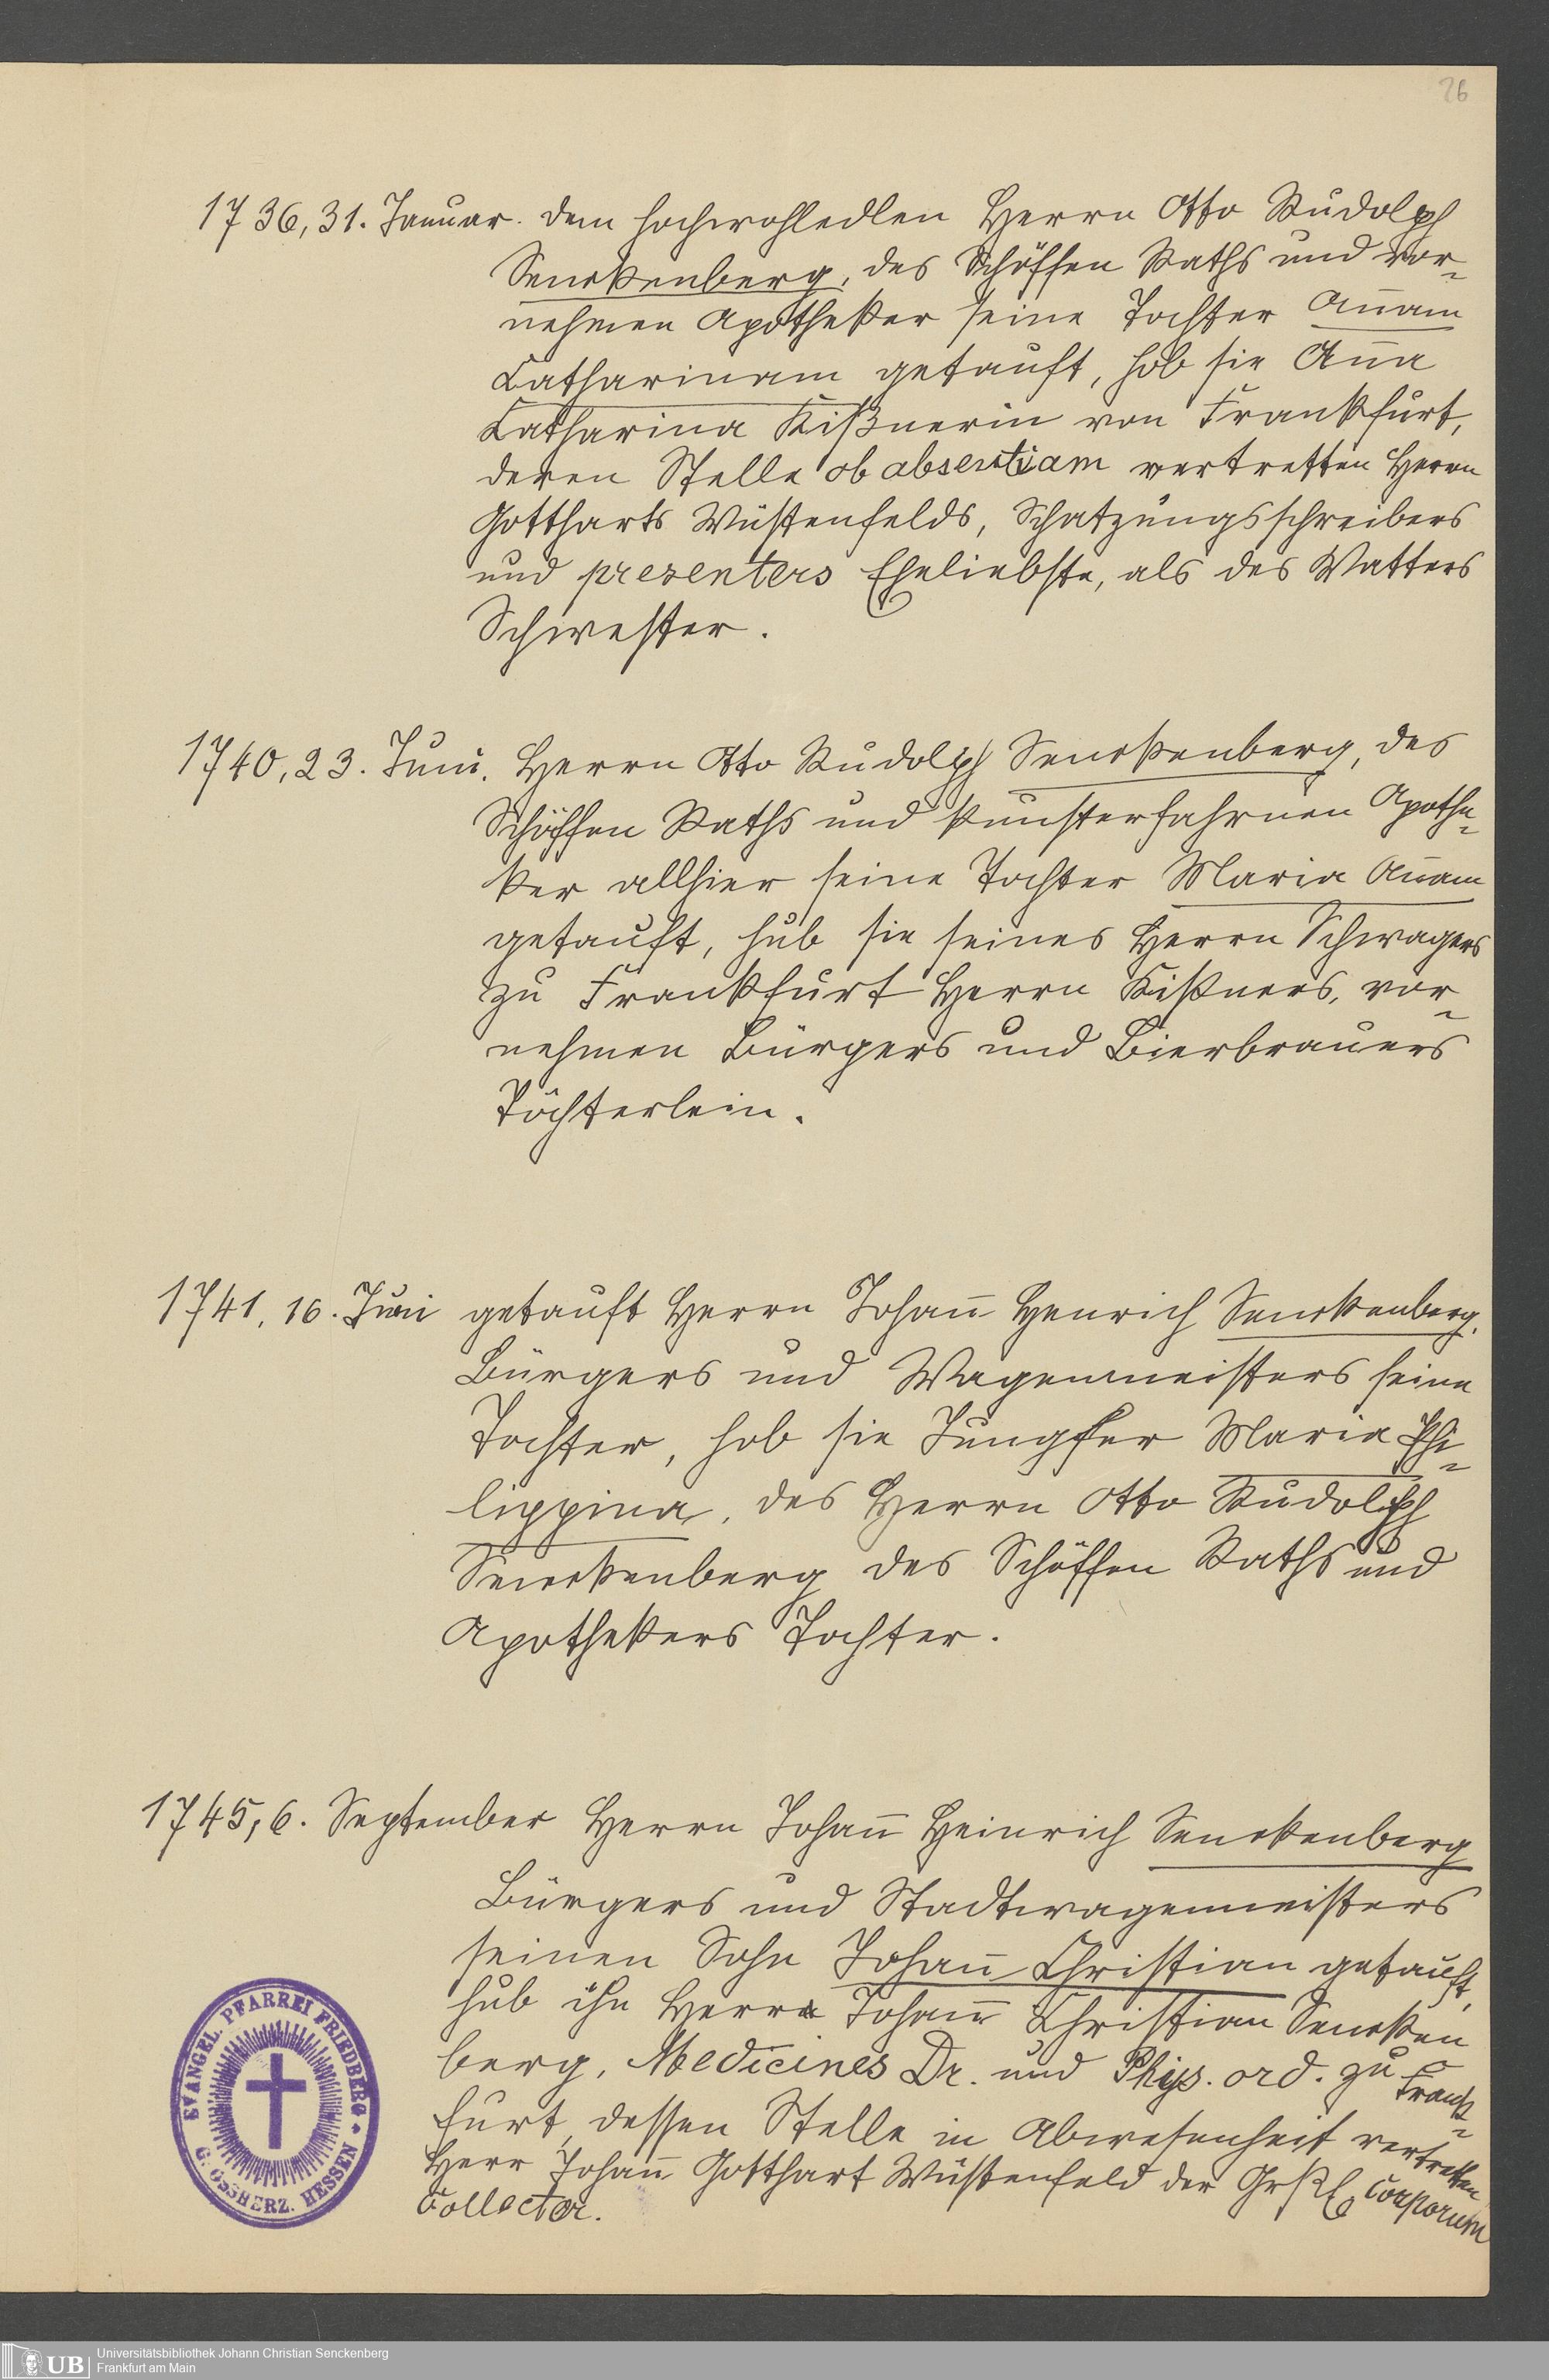 26
1736, 31. Januar. dem hochwohledlen Herrn Otto Rudolph
Senckenberg, des Schöffen Raths und vor-
nehmen Apotheker seine Tochter Añam
Catharinam getauft, hob sie Aña
Catharina Kißnerin von Frankfurt,
deren Stelle ob absentiam vertretten Herrn
Gottharts Wüstenfelds, Schatzungsschreibers
und presenters Eheliebste, als des Vatters
Schwester.
1740, 23. Juni. Herrn Otto Rudolph Senckenberg, des
Schöffen Raths und kunsterfahrnen Apothe-
ker allhier seine Tochter Maria Añam
getauft, hub sie seines Herrn Schwagers
zu Frankfurt Herrn Kißners, vor-
nehmen Bürgers und Bierbrauers
Töchterlein.
1741, 16. Juni getauft Herrn Johañ Henrich Senckenberg,
Bürgers und Wagenmeisters seine
Tochter, hob sie Jungfer Maria Phi-
lippina, des Herrn Otto Rudolph
Senckenberg des Schöffen Raths und
Apothekers Tochter.
1745, 6. September Herrn Johañ Heinrich Senckenberg
Bürgers und Stadtwagenmeisters
seinen Sohn Johañ Christian getauft,
hub ihn Herr Johañ Christian Sencken
berg, Medicines Dr. und Phys. ord. zu Frank-
furt, dessen Stelle in Abwesenheit vertretten
Herr Johañ Gotthart Wüstenfeld der Corporum
Collector.
EVANGEL. PFARREI FRIEDBERG
G. OSSHERZ. HESSEN
UB
Universitätsbibliothek Johann Christian Senckenberg
Frankfurt am Main